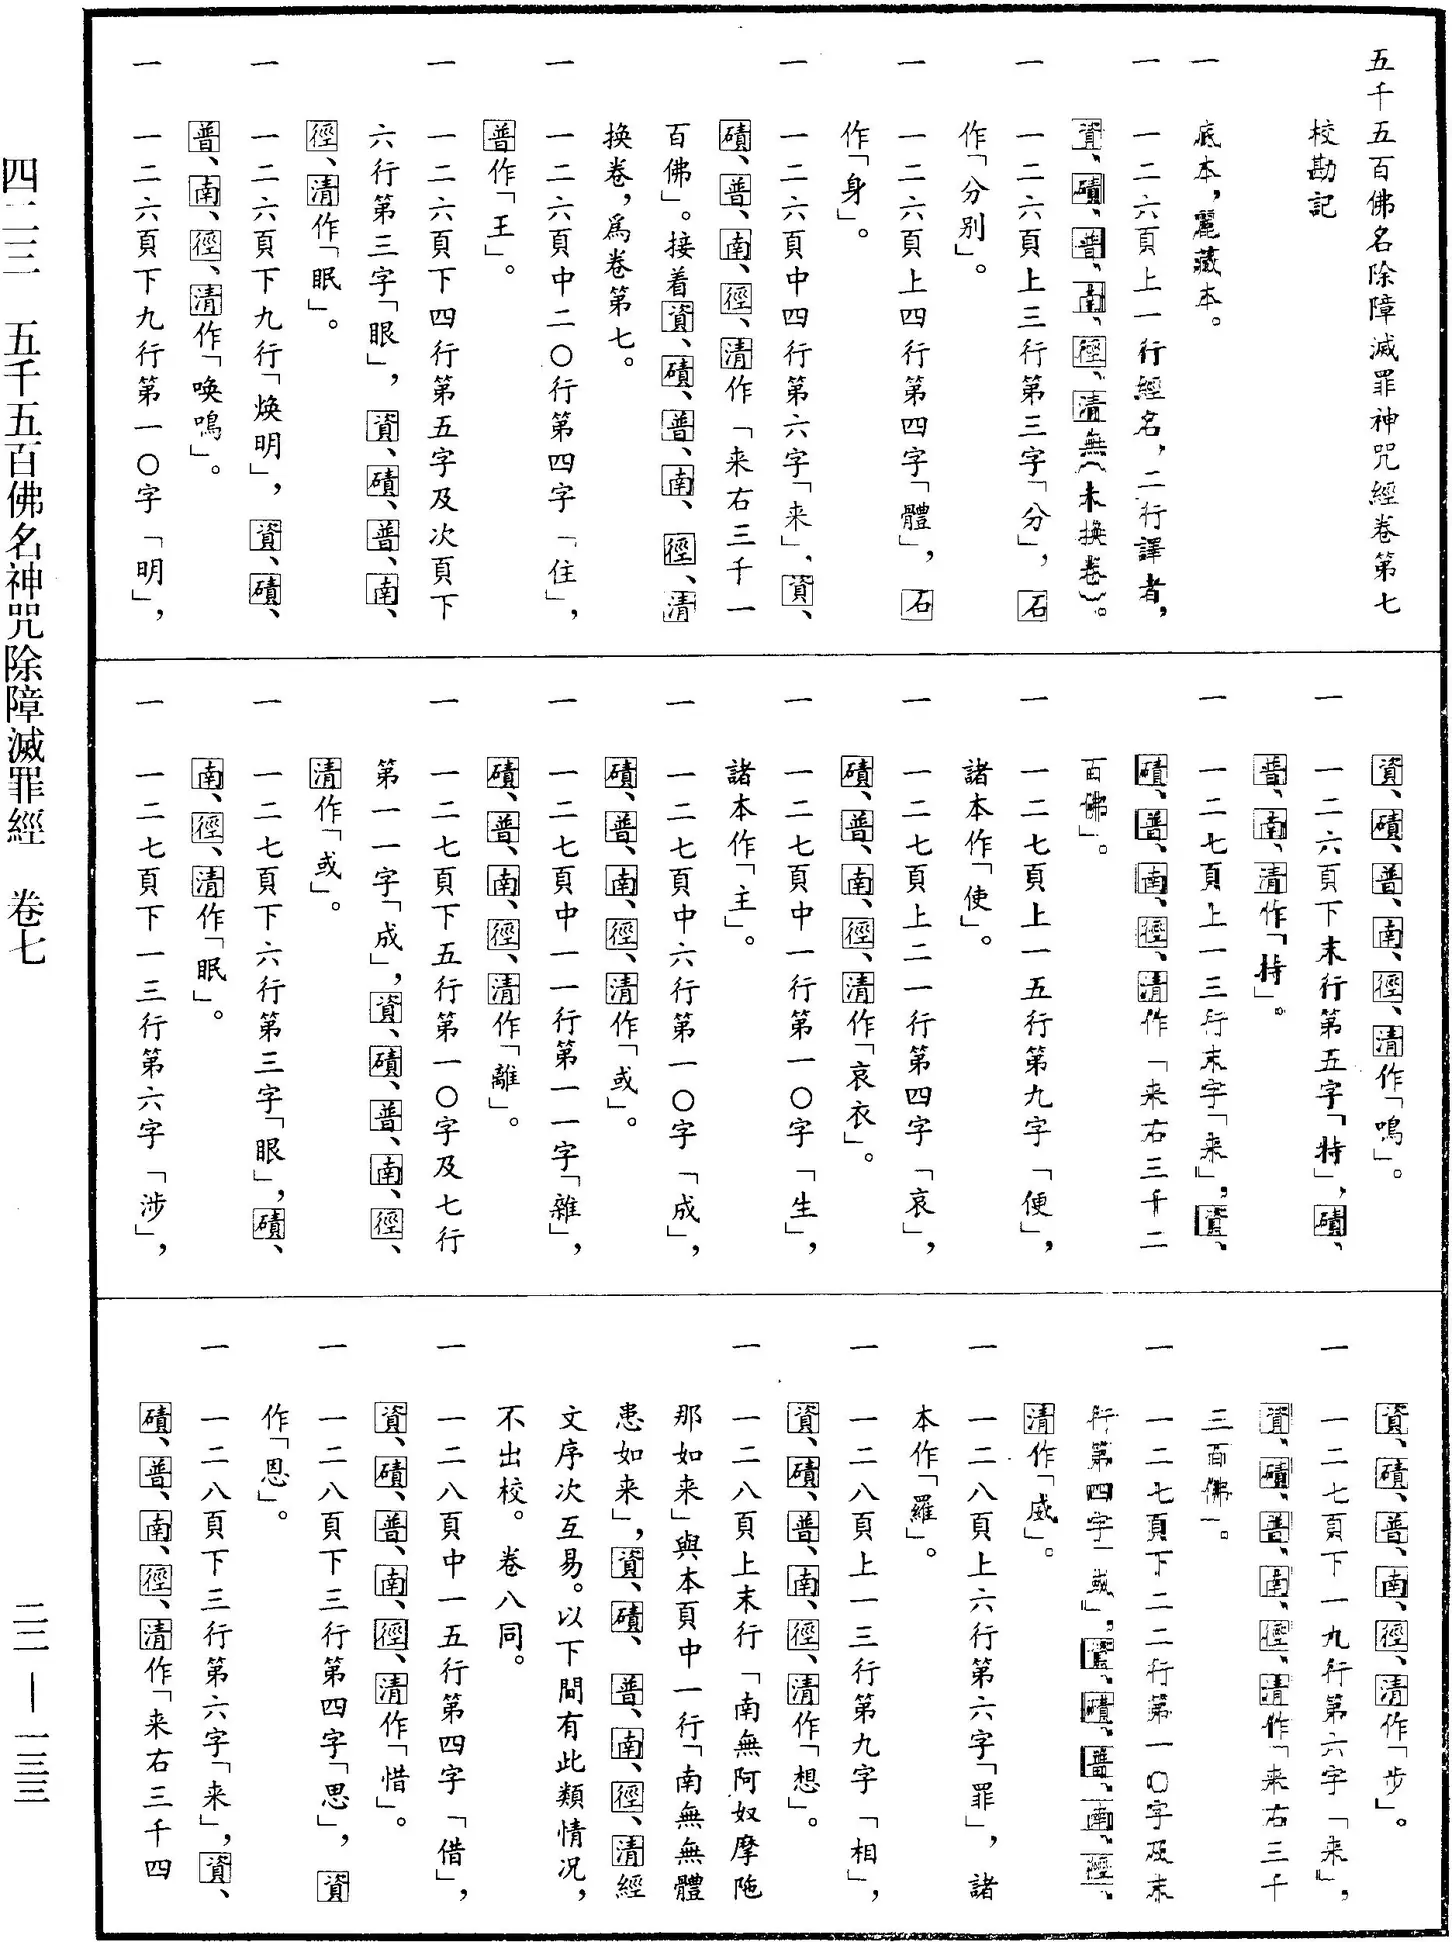 五千五百佛名除障滅罪神咒經卷第七
校勘記
一　底本，麗藏本。
一　一二六頁上一行經名，二行譯者，
資、磧、普、南、徑、清無（未換卷）。
一　一二六頁上三行第三字「分」，石
作「分别」。
一　一二六頁上四行第四字「體」，石
作「身」。
一　一二六頁中四行第六字「来」，資、
磧、普、南、徑、清作「来右三千一
百佛」。接着資、磧、普、南、徑、清
换卷，爲卷第七。
一　一二六頁中二〇行第四字「住」，
普作「王」。
一　一二六頁下四行第五字及次頁下
六行第三字「眼」，資、磧、普、南、
徑、清作「眠」。
一　一二六頁下九行「焕明」，資、磧、
普、南、徑、清作「唤鳴」。
一　一二六頁下九行第一〇字「明」，
資、磧、普、南、徑、清作「鳴」。
一　一二六頁下末行第五字「特」，磧、
普、南、清作「持」。
一　一二七頁上一三行末字「来」，資、
磧、普、南、徑、清作「来右三千二
百佛」。
一　一二七頁上一五行第九字「便」，
諸本作「使」。
一　一二七頁上二一行第四字「哀」，
磧、普、南、徑、清作「哀衣」。
一　一二七頁中一行第一〇字「生」，
諸本作「主」。
一　一二七頁中六行第一〇字「成」，
磧、普、南、徑、清作「或」。
一　一二七頁中一一行第一一字「雜」，
磧、普、南、徑、清作「離」。
一　一二七頁下五行第一〇字及七行
第一一字「成」，資、磧、普、南、徑、
清作「或」。
一　一二七頁下六行第三字「眼」，磧、
南、徑、清作「眠」。
一　一二七頁下一三行第六字「涉」，
資、磧、普、南、徑、清作「步」。
一　一二七頁下一九行第六字「来」，
資、磧、普、南、徑、清作「来右三千
三百佛」。
一　一二七頁下二二行第一〇字及末
行第四字「或」，資、磧、普、南、徑、
清作「威」。
一　一二八頁上六行第六字「罪」，諸
本作「羅」。
一　一二八頁上一三行第九字「相」，
資、磧、普、南、徑、清作「想」。
一　一二八頁上末行「南無阿奴摩陁
那如来」與本頁中一行「南無無體
患如来」，資、磧、普、南、徑、清經
文序次互易。以下間有此類情况，
不出校。卷八同。
一　一二八頁中一五行第四字「借」，
資、磧、普、南、徑、清作「惜」。
一　一二八頁下三行第四字「思」，資
作「恩」。
一　一二八頁下三行第六字「来」，資、
磧、普、南、徑、清作「来右三千四
四二三　五千五百佛名神咒除障滅罪經　卷七
二二—一三三